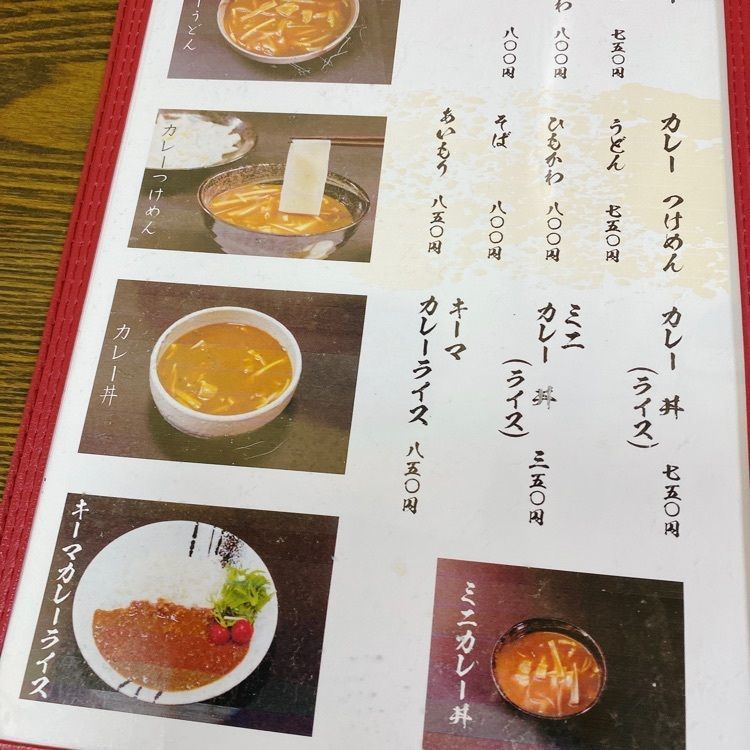 うどん
わ 八〇〇円
七五〇円
八〇〇円
カレー つけめん
うどん 七五〇円
ひもかわ 八〇〇円
そば 八〇〇円
あいもり 八五〇円
カレー 丼
(ライス) 七五〇円
ミニ
カレー 丼
(ライス) 三五〇円
キーマ
カレーライス 八五〇円
カレーつけめん
カレー丼
キーマカレーライス
ミニカレー丼